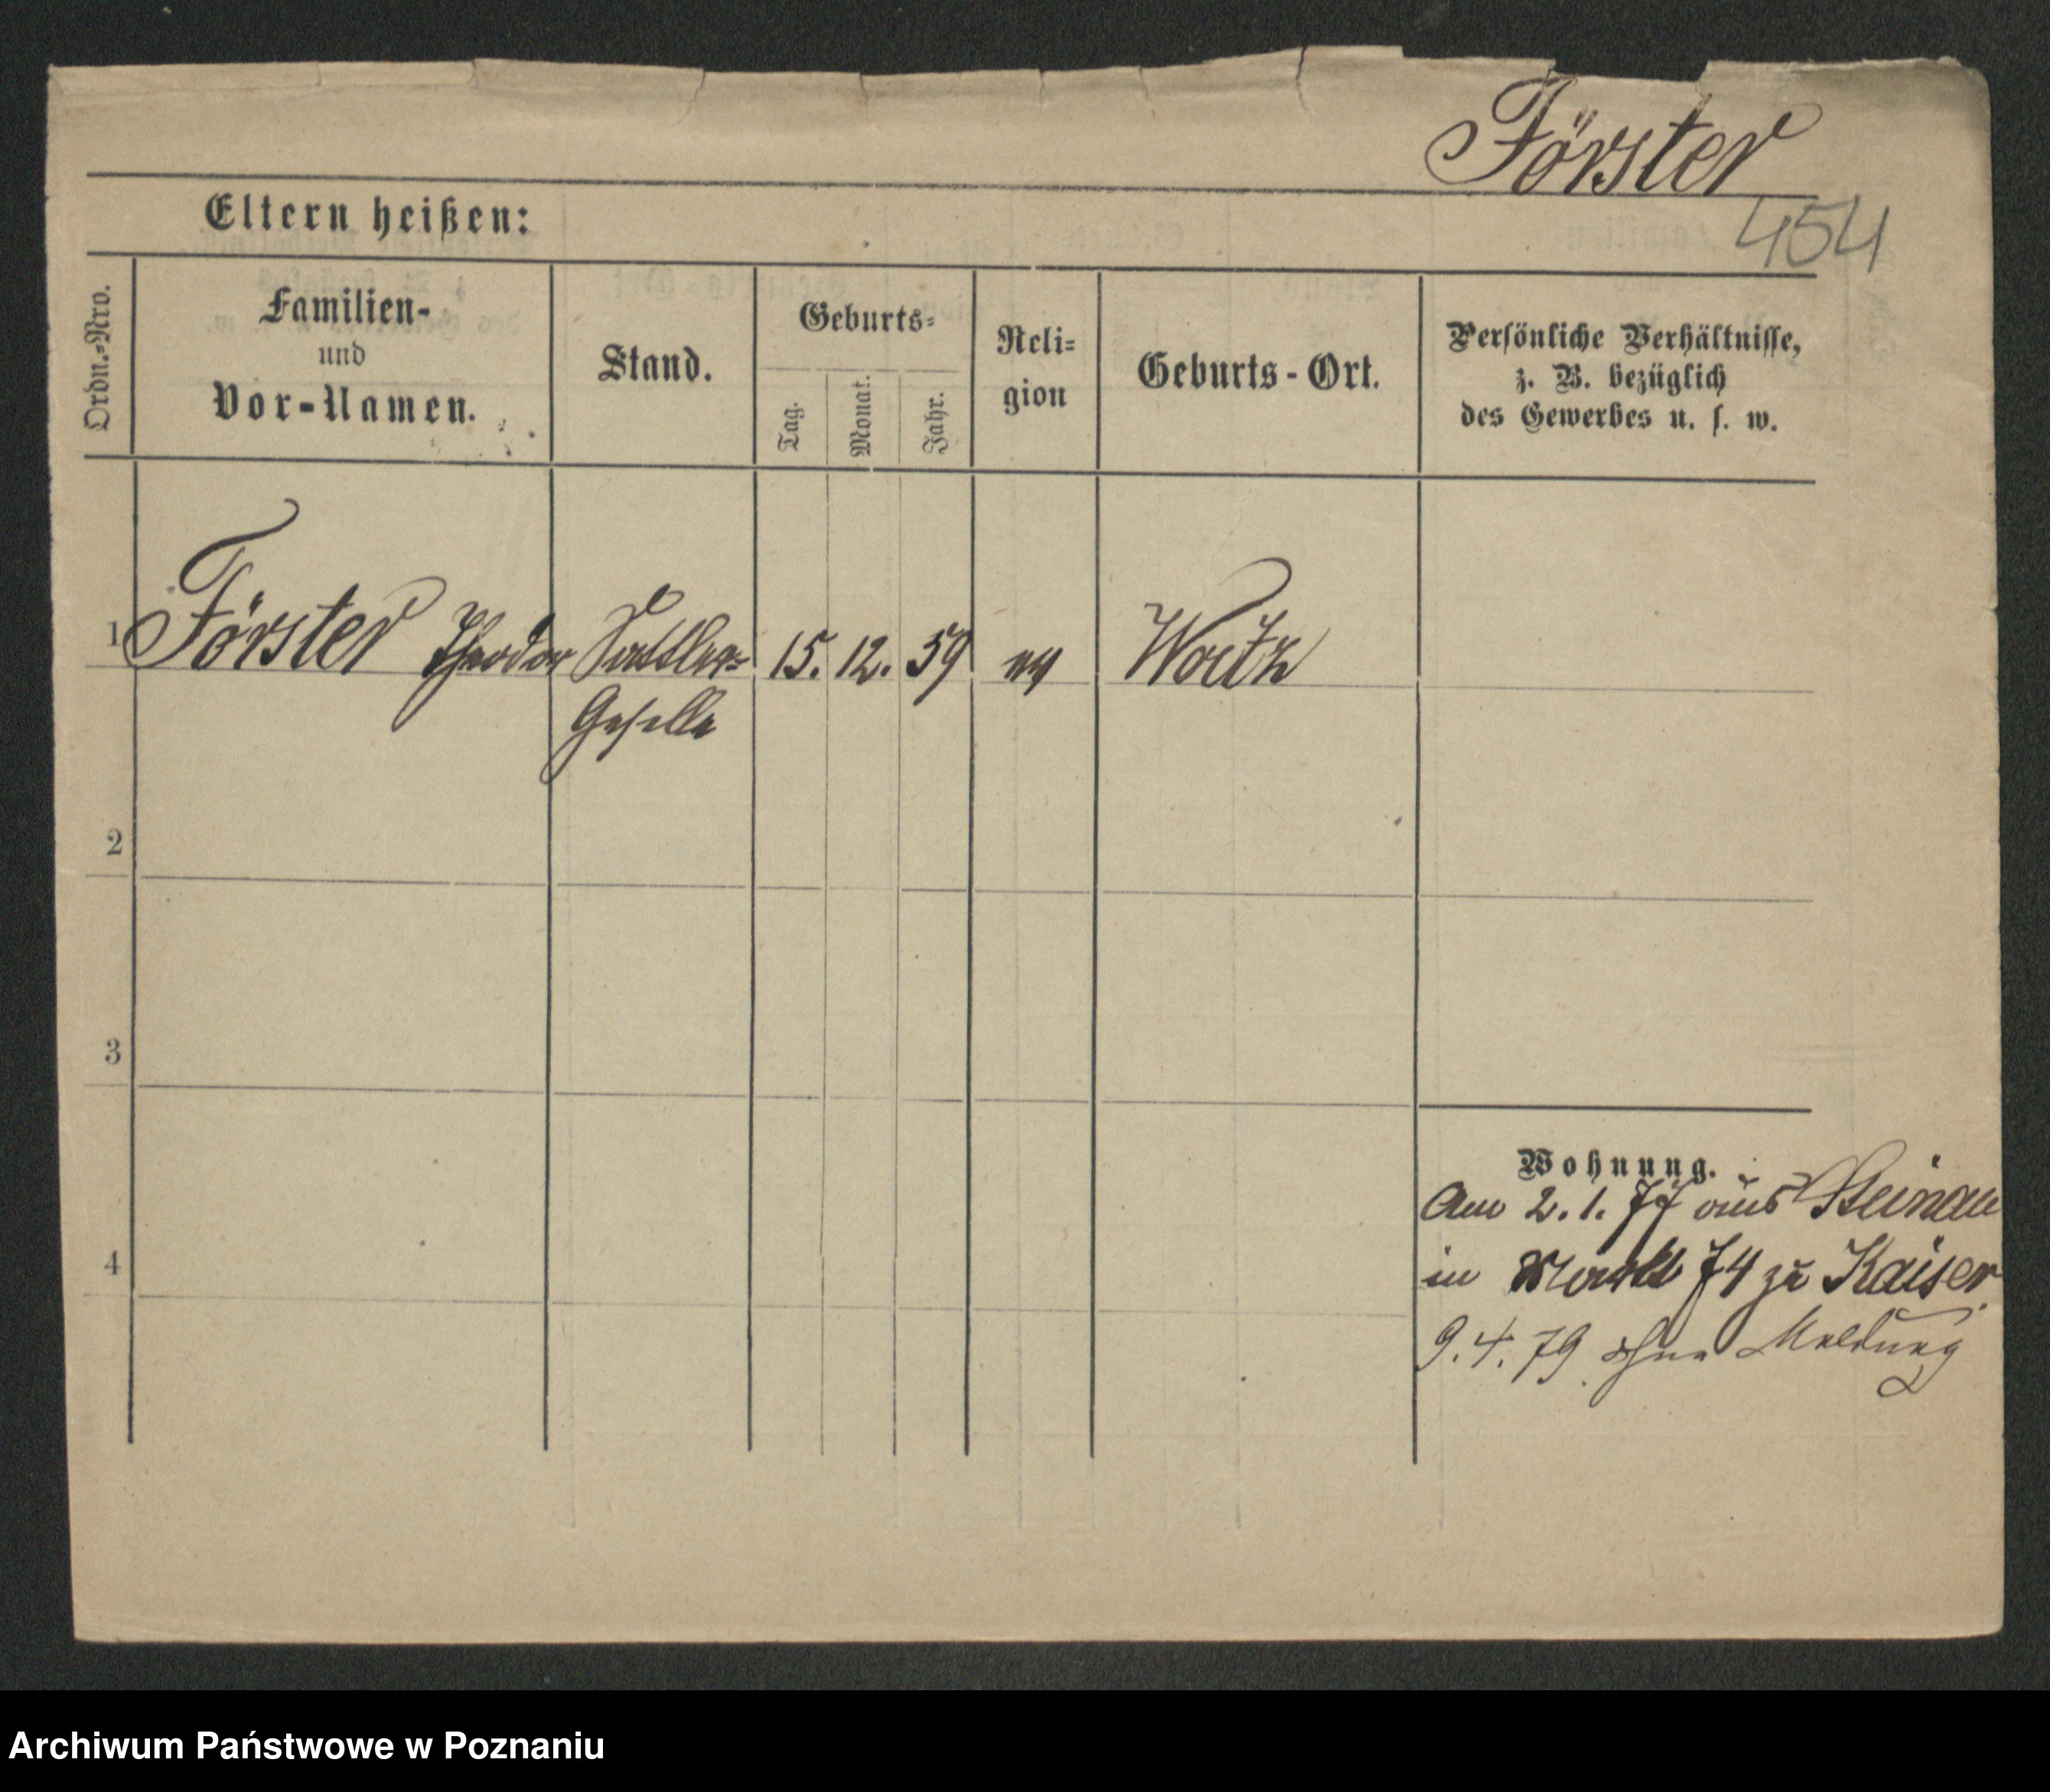 Förster
454
Eltern heißen:
Ordn.=Nro.
Familien-
und
Vor-Namen.
Stand.
Geburts=
Tag.
Monat.
Jahr.
Reli=
gion
Geburts-Ort.
Persönliche Verhältnisse,
z. B. bezüglich
des Gewerbes u. s. w.
1 Förster Theodor Sattler= 15. 12. 59 ev
Geselle
2
3
Wohnung.
Am 2. 1. 77 aus Steinau
4
in Markt 74 zu Kaiser
9. 4. 79. ohne Meldung
Archiwum Państwowe w Poznaniu